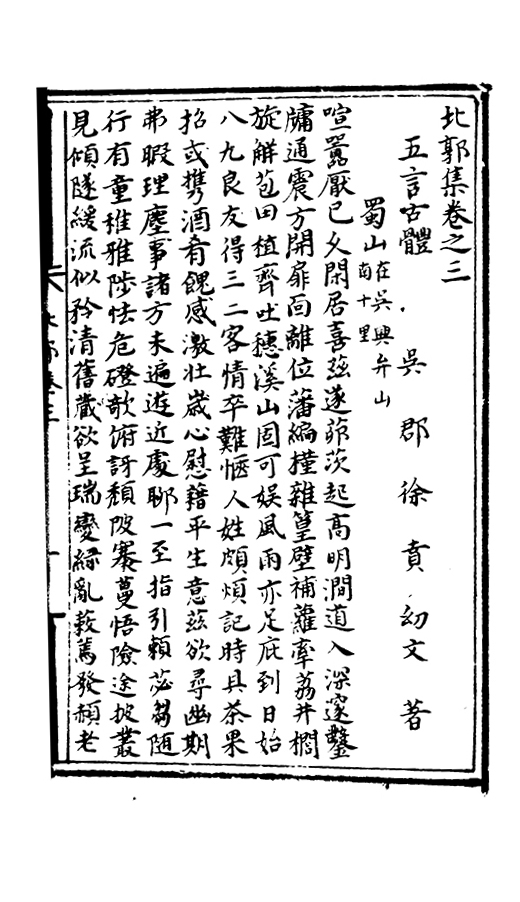 北郭集卷之三
五言古體　吳郡徐賁幼文著
蜀山在吳興弁山南十里
喧囂厭已夂閑居喜茲遂茆茨起高明澗道入深邃鑿
牗通震方開扉面離位藩編槿雜篁壁補蘿牽荔井櫩
旋觧苞田植齊吐穗溪山固可娱風雨亦足庇到日始
八九良友得三二客情卒難愜人姓頗煩記時具茶果
招或携酒肴餽感激壮嵗心慰藉平生意茲欲尋幽期
弗暇理塵事諸方未遍遊近處聊一至指引賴苾蒭随
行有童稚雅陟怯危磴欹俯訝頽陂褰蔓悟險途披叢
見傾隧緩流似矜清舊蕆欲呈瑞變緑亂薮蔫發赬老